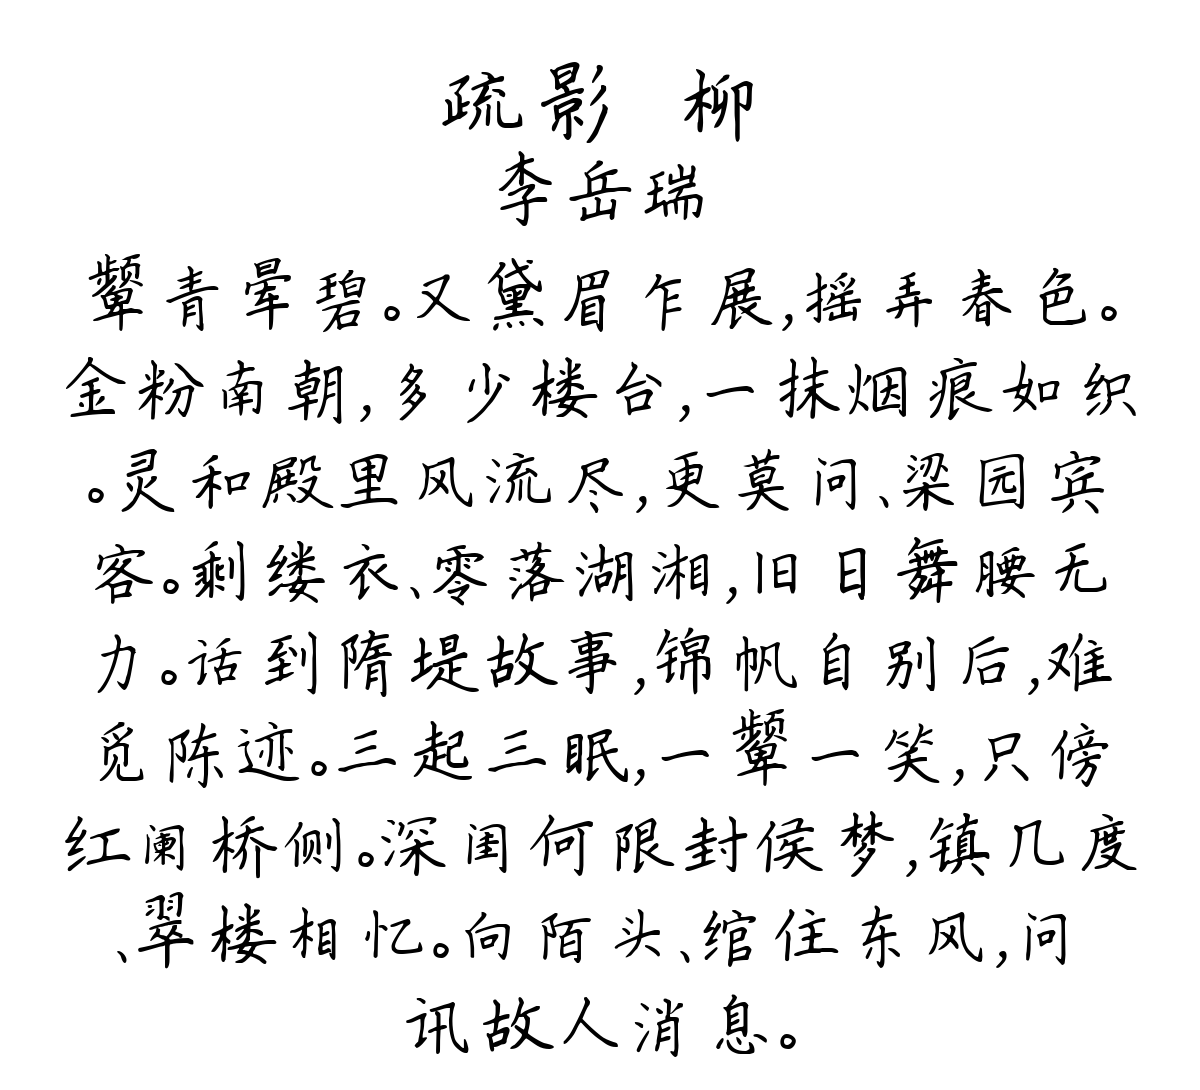 疏影 柳
李岳瑞
颦青晕碧。又黛眉乍展,摇弄春色。
金粉南朝,多少楼台,一抹烟痕如织
。灵和殿里风流尽,更莫问、梁园宾
客。剩缕衣、零落湖湘,旧日舞腰无
力。话到隋堤故事,锦帆自别后,难
觅陈迹。三起三眠,一颦一笑,只傍
红阑桥侧。深闺何限封侯梦,镇几度
、翠楼相忆。向陌头、绾住东风,问
讯故人消息。